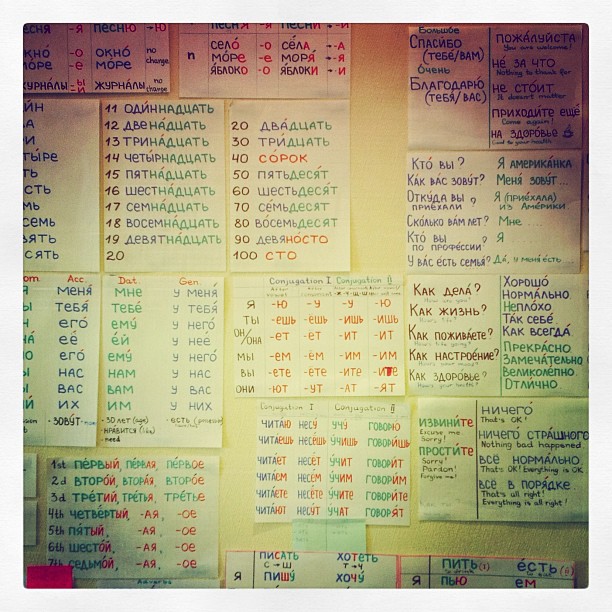 ПЕСНЯ -Я ПЕСНЮ -Ю
ОКНО -О ОКНО no change
МОРЕ -Е МОРЕ
ЖУРНАЛЫ -Ы -И ЖУРНАЛЫ no change
ПЕСНЯ -Я ПЕСНИ -И
n СЕЛО́ -О СЁЛА -А
МО́РЕ -Е МОРЯ́ -Я
Я́БЛОКО -О Я́БЛОКИ -И
Большое
Спасибо
(ТЕБЕ/ВАМ)
Очень
БЛАГОДАРЮ
(ТЕБЯ/ВАС)
ПОЖАЛУЙСТА
You are welcome!
НЕ ЗА ЧТО
Nothing to thank for
НЕ СТОИТ
It doesn't matter
ПРИХОДИТЕ ЕЩЁ
Come again!
НА ЗДОРОВЬЕ
ЙН
ВА
РИ
ТЫРЕ
ТЬ
СТЬ
СЕМЬ
ВЯТЬ
СЯТЬ
11 ОДИ́ННАДЦАТЬ
12 ДВЕНА́ДЦАТЬ
13 ТРИНА́ДЦАТЬ
14 ЧЕТЫ́РНАДЦАТЬ
15 ПЯТНА́ДЦАТЬ
16 ШЕСТНА́ДЦАТЬ
17 СЕМНА́ДЦАТЬ
18 ВОСЕМНА́ДЦАТЬ
19 ДЕВЯТНА́ДЦАТЬ
20
20 ДВА́ДЦАТЬ
30 ТРИ́ДЦАТЬ
40 СО́РОК
50 ПЯТЬДЕСЯ́Т
60 ШЕСТЬДЕСЯ́Т
70 СЕ́МЬДЕСЯТ
80 ВО́СЕМЬДЕСЯТ
90 ДЕВЯНО́СТО
100 СТО
КТО ВЫ? Я АМЕРИКАНКА
КАК ВАС ЗОВУТ? МЕНЯ ЗОВУТ ...
ОТКУДА ВЫ ПРИЕХАЛИ? Я (ПРИЕХАЛА) ИЗ АМЕРИКИ
СКОЛЬКО ВАМ ЛЕТ? МНЕ ...
КТО ВЫ ПО ПРОФЕССИИ? Я
У ВАС ЕСТЬ СЕМЬЯ? ДА, У МЕНЯ ЕСТЬ...
om Acc.
МЕНЯ
ТЕБЯ
ЕГО
ЕЁ
ЕГО
НАС
ВАС
ИХ
-ЗОВУТ
Dat. Gen.
МНЕ У МЕНЯ
ТЕБЕ У ТЕБЯ
ЕМУ У НЕГО
ЕЙ У НЕЁ
ЕМУ У НЕГО
НАМ У НАС
ВАМ У ВАС
ИМ У НИХ
-30 ЛЕТ (age) -ЕСТЬ
НРАВИТСЯ (like)
-need
Conjugation I Conjugation II
Я -Ю -У -Ю -У
ТЫ -ЕШЬ -ЕШЬ -ИШЬ -ИШЬ
ОН/ОНА -ЕТ -ЕТ -ИТ -ИТ
МЫ -ЕМ -ЕМ -ИМ -ИМ
ВЫ -ЕТЕ -ЕТЕ -ИТЕ -ИТЕ
ОНИ -ЮТ -УТ -АТ -ЯТ
КАК ДЕЛА?
КАК ЖИЗНЬ?
КАК ПОЖИВАЕТЕ?
КАК НАСТРОЕНИЕ?
КАК ЗДОРОВЬЕ?
ХОРОШО
НОРМАЛЬНО
НЕПЛОХО
ТАК СЕБЕ
КАК ВСЕГДА.
ПРЕКРАСНО
ЗАМЕЧАТЕЛЬНО
ВЕЛИКОЛЕПНО.
ОТЛИЧНО.
Conjugation I Conjugation II
ЧИТАЮ НЕСУ УЧУ ГОВОРЮ
ЧИТАЕШЬ НЕСЁШЬ УЧИШЬ ГОВОРИШЬ
ЧИТАЕТ НЕСЁТ УЧИТ ГОВОРИТ
ЧИТАЕМ НЕСЁМ УЧИМ ГОВОРИМ
ЧИТАЕТЕ НЕСЁТЕ УЧИТЕ ГОВОРИТЕ
ЧИТАЮТ НЕСУТ УЧАТ ГОВОРЯТ
ИЗВИНИТЕ
Excuse me
Sorry!
ПРОСТИТЕ
Sorry!
Pardon!
Forgive me!
НИЧЕГО
That's OK!
НИЧЕГО СТРАШНОГО
Nothing bad happened
ВСЁ НОРМАЛЬНО
That's OK! Everything is OK
ВСЁ В ПОРЯДКЕ
That's all right!
Everything is all right!
1st ПЕ́РВЫЙ, ПЕ́РВАЯ, ПЕ́РВОЕ
2d ВТОРО́Й, ВТОРА́Я, ВТОРО́Е
3d ТРЕ́ТИЙ, ТРЕ́ТЬЯ, ТРЕ́ТЬЕ
4th ЧЕТВЁРТЫЙ, -АЯ, -ОЕ
5th ПЯ́ТЫЙ, -АЯ, -ОЕ
6th ШЕСТО́Й, -АЯ, -ОЕ
7th СЕДЬМО́Й, -АЯ, -ОЕ
Adverbs
ПИСАТЬ ХОТЕТЬ
С→Ш Т→Ч
Я ПИШУ ХОЧУ
ПИТЬ (I) ЕСТЬ (II)
Я ПЬЮ ЕМ